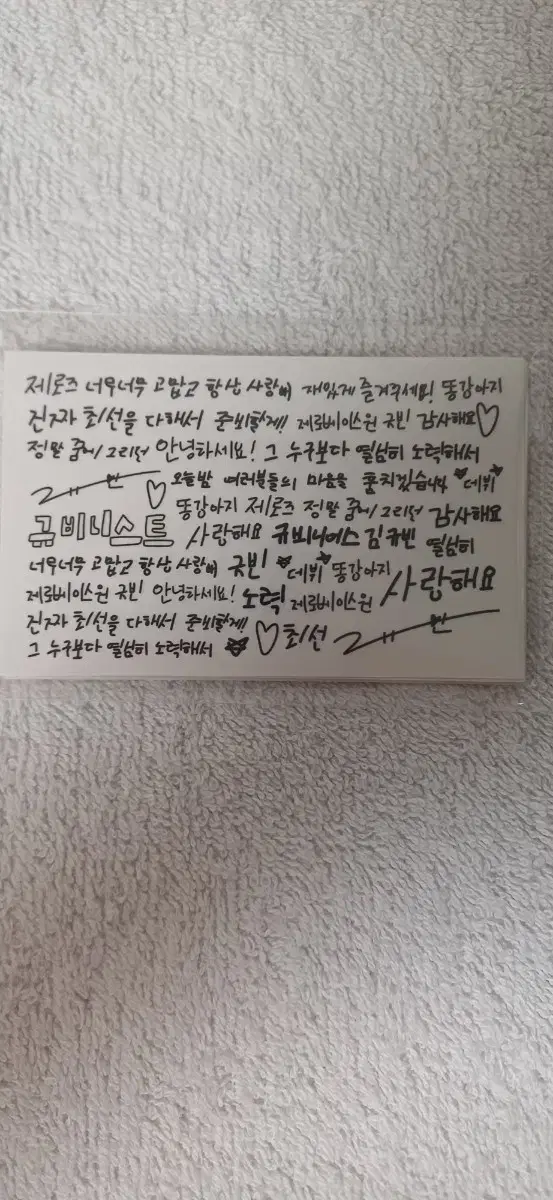 제로즈 너무너무 고맙고 항상 사랑해 재밌게 즐겨주세요! 똥강아지
진짜 최선을 다해서 준비할게! 제로베이스원 규빈 감사해요♡
정말 그리던 안녕하세요! 그 누구보다 열심히 노력해서
♡ 오늘밤 여러분들의 마음을 훔치겠습니다 데뷔
규비니스트 똥강아지 제로즈 정말 그리던 감사해요
사랑해요 규비니어스 김규빈 열심히
너무너무 고맙고 항상 사랑해 규빈 데뷔 똥강아지
제로베이스원 규빈 안녕하세요! 노력 제로베이스원 사랑해요
진짜 최선을 다해서 준비할게!
그 누구보다 열심히 노력해서 ♡최선